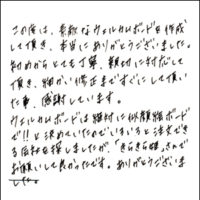 この度は、素敵なウェルカムボードを作成
して頂き、本当にありがとうございました。
初めからとても丁寧、親切に対応して
頂き、細かい修正まですぐにして頂い
た事、感謝しています。
ウェルカムボードは絶対に似顔絵ボード
で!!と決めていたのでいろいろと注文でき
る店を探しましたが、「きらきら
お願いして良かったです。ありがとうございま
した。